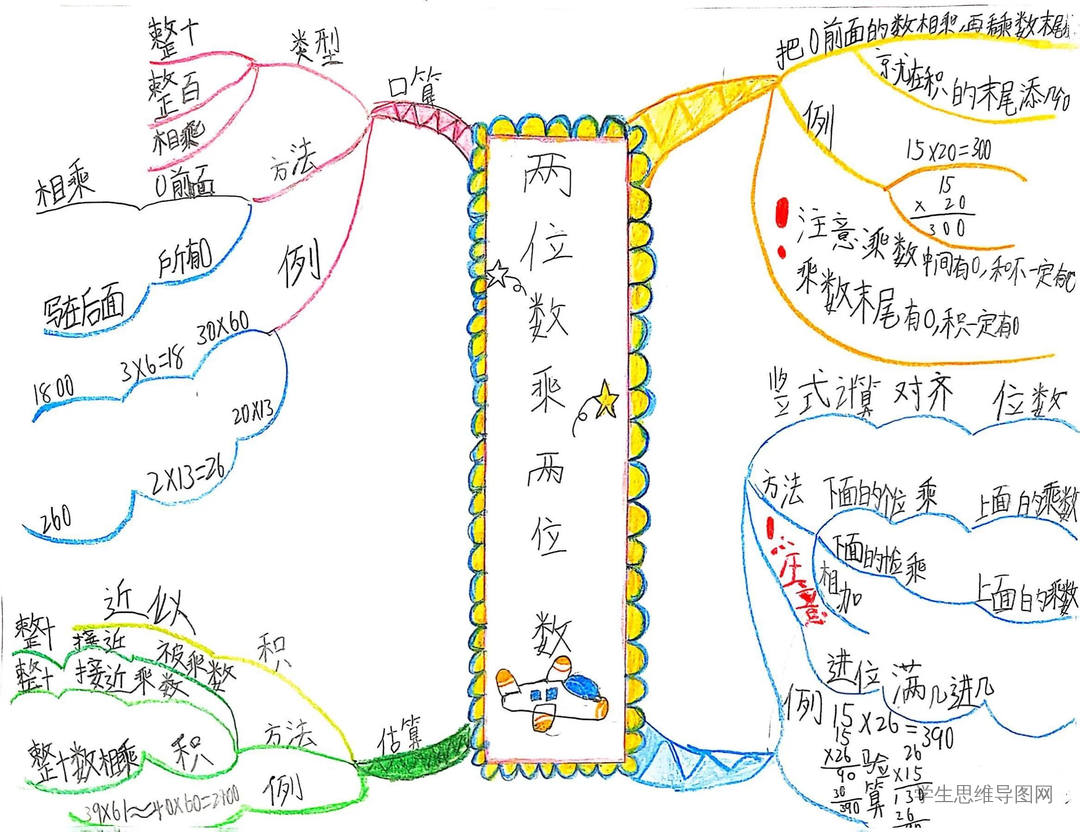 两位数乘两位数
口算
类型
整十
整百
相乘
方法
0前面
相乘
所有0
写在后面
例
30×60
3×6=18
1800
20×13
2×13=26
260
把0前面的数相乘,再乘数末尾
就在积的末尾添几个0
例
15×20=300
15
× 20
300
!注意:乘数中间有0,和不一定有0
乘数末尾有0,积一定有0
竖式计算 对齐 位数
方法
下面的个位 乘 上面的乘数
下面的 乘 上面的乘数
相加
!注意
进位 满几进几
例
15×26=390
15
×26
90
30
390
验算
26
×15
130
26
估算
积
近似
方法
被乘数 接近 整十
乘数 接近 整十
积 整十数相乘
例
39×61≈40×60=2400
学生思维导图网